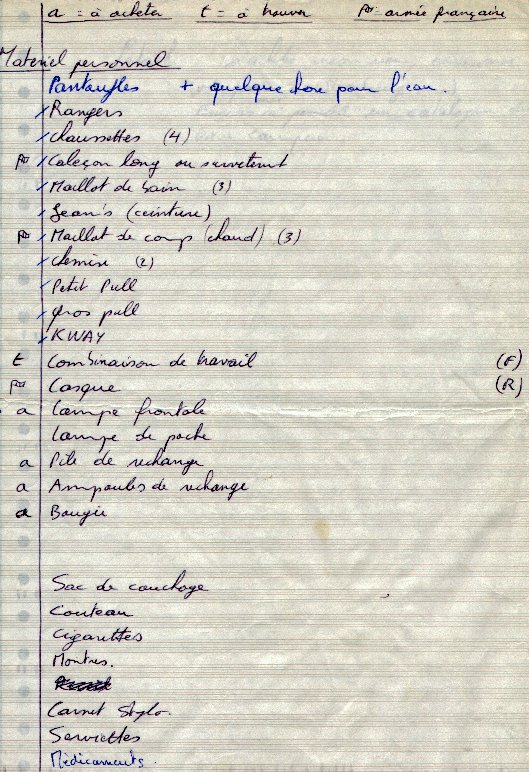 a = à acheter t = à trouver = armée française
Matériel personnel
Pantoufles + quelque chose pour l'eau.
Rangers
chaussettes (4)
Caleçon long ou survetement
Maillot de bain (3)
Jean's (ceinture)
Maillot de corps (chaud) (3)
chemise (2)
Petit Pull
gros pull
KWAY
t Combinaison de travail (F)
Casque (R)
a Lampe frontale
Lampe de poche
a Pile de rechange
a Ampoules de rechange
a Bougie
Sac de couchage
Couteau
Cigarettes
Montres.
Carnet Stylo.
Serviettes
Médicaments.